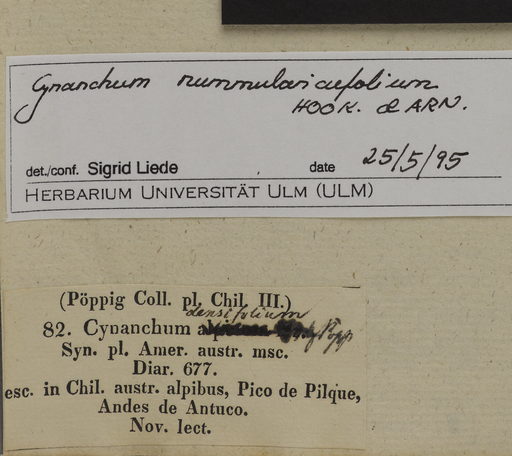 Cynanchum nummulariaefolium
HOOK. & ARN.
det./conf. Sigrid Liede date 25/5/95
HERBARIUM UNIVERSITÄT ULM (ULM)
(Pöppig Coll. pl. Chil. III.)
densifolium
82. Cynanchum Pöpp
Syn. pl. Amer. austr. msc.
Diar. 677.
esc. in Chil. austr. alpibus, Pico de Pilque,
Andes de Antuco.
Nov. lect.